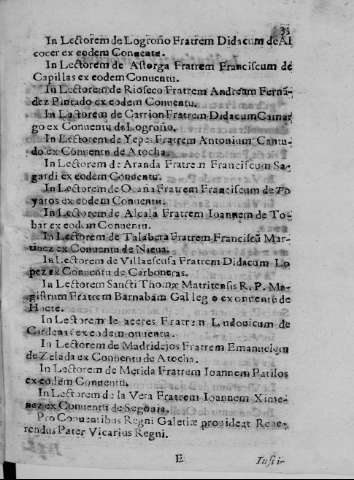 35
In Lectorem de Logroño Fratrem Didacum de Al
cocer ex eodem Conuentu.
In Lectorem de Astorga Fratrem Franciscum de
Capillas ex eodem Conuentu.
In Lectorem de Rioseco Fratrem Andream Fernã
dez Pintado ex eodem Conuentu.
In Lectorem de Carrion Fratrem Didacum Camar
go ex Conuentu de Logroño.
In Lectorem de Yepes Fratrem Antonium Canu
do ex Conuentu de Atocha.
In Lectorem de Aranda Fratrem Franciscum Sa
gardi ex eodem Conuentu.
In Lectorem de Ocaña Fratrem Franciscum de To
yaros ex eodem Conuentu.
In Lectorem de Alcala Fratrem Ioannem de To
bar ex eodem Conuentu.
In Lectorem de Talabera Fratrem Franciscũ Mar
tinez ex Conuentu de Nieua.
In Lectorem de Villaescusa Fratrem Didacum Lo
pez ex Conuentu de Carboneras.
In Lectorem Sancti Thomæ Matritensis R. P. Ma
gistrum Fratrem Barnabam Gallego ex conuentu de
Huete.
In Lectorem Fratrem Ludouicum de
Cardenas ex eodem conuentu.
In Lectorem de Madridejos Fratrem Emanuelem
de Zelada ex Conuentu de Atocha.
In Lectorem de Merida Fratrem Ioannem Patiños
ex eodem Conuentu.
In Lectorem de la Vera Fratrem Ioannem Xime
nez ex Conuentu de Segouia.
Pro Conuentibus Regni Galetiæ prouideat Reue
rendus Pater Vicarius Regni.
E Insti-